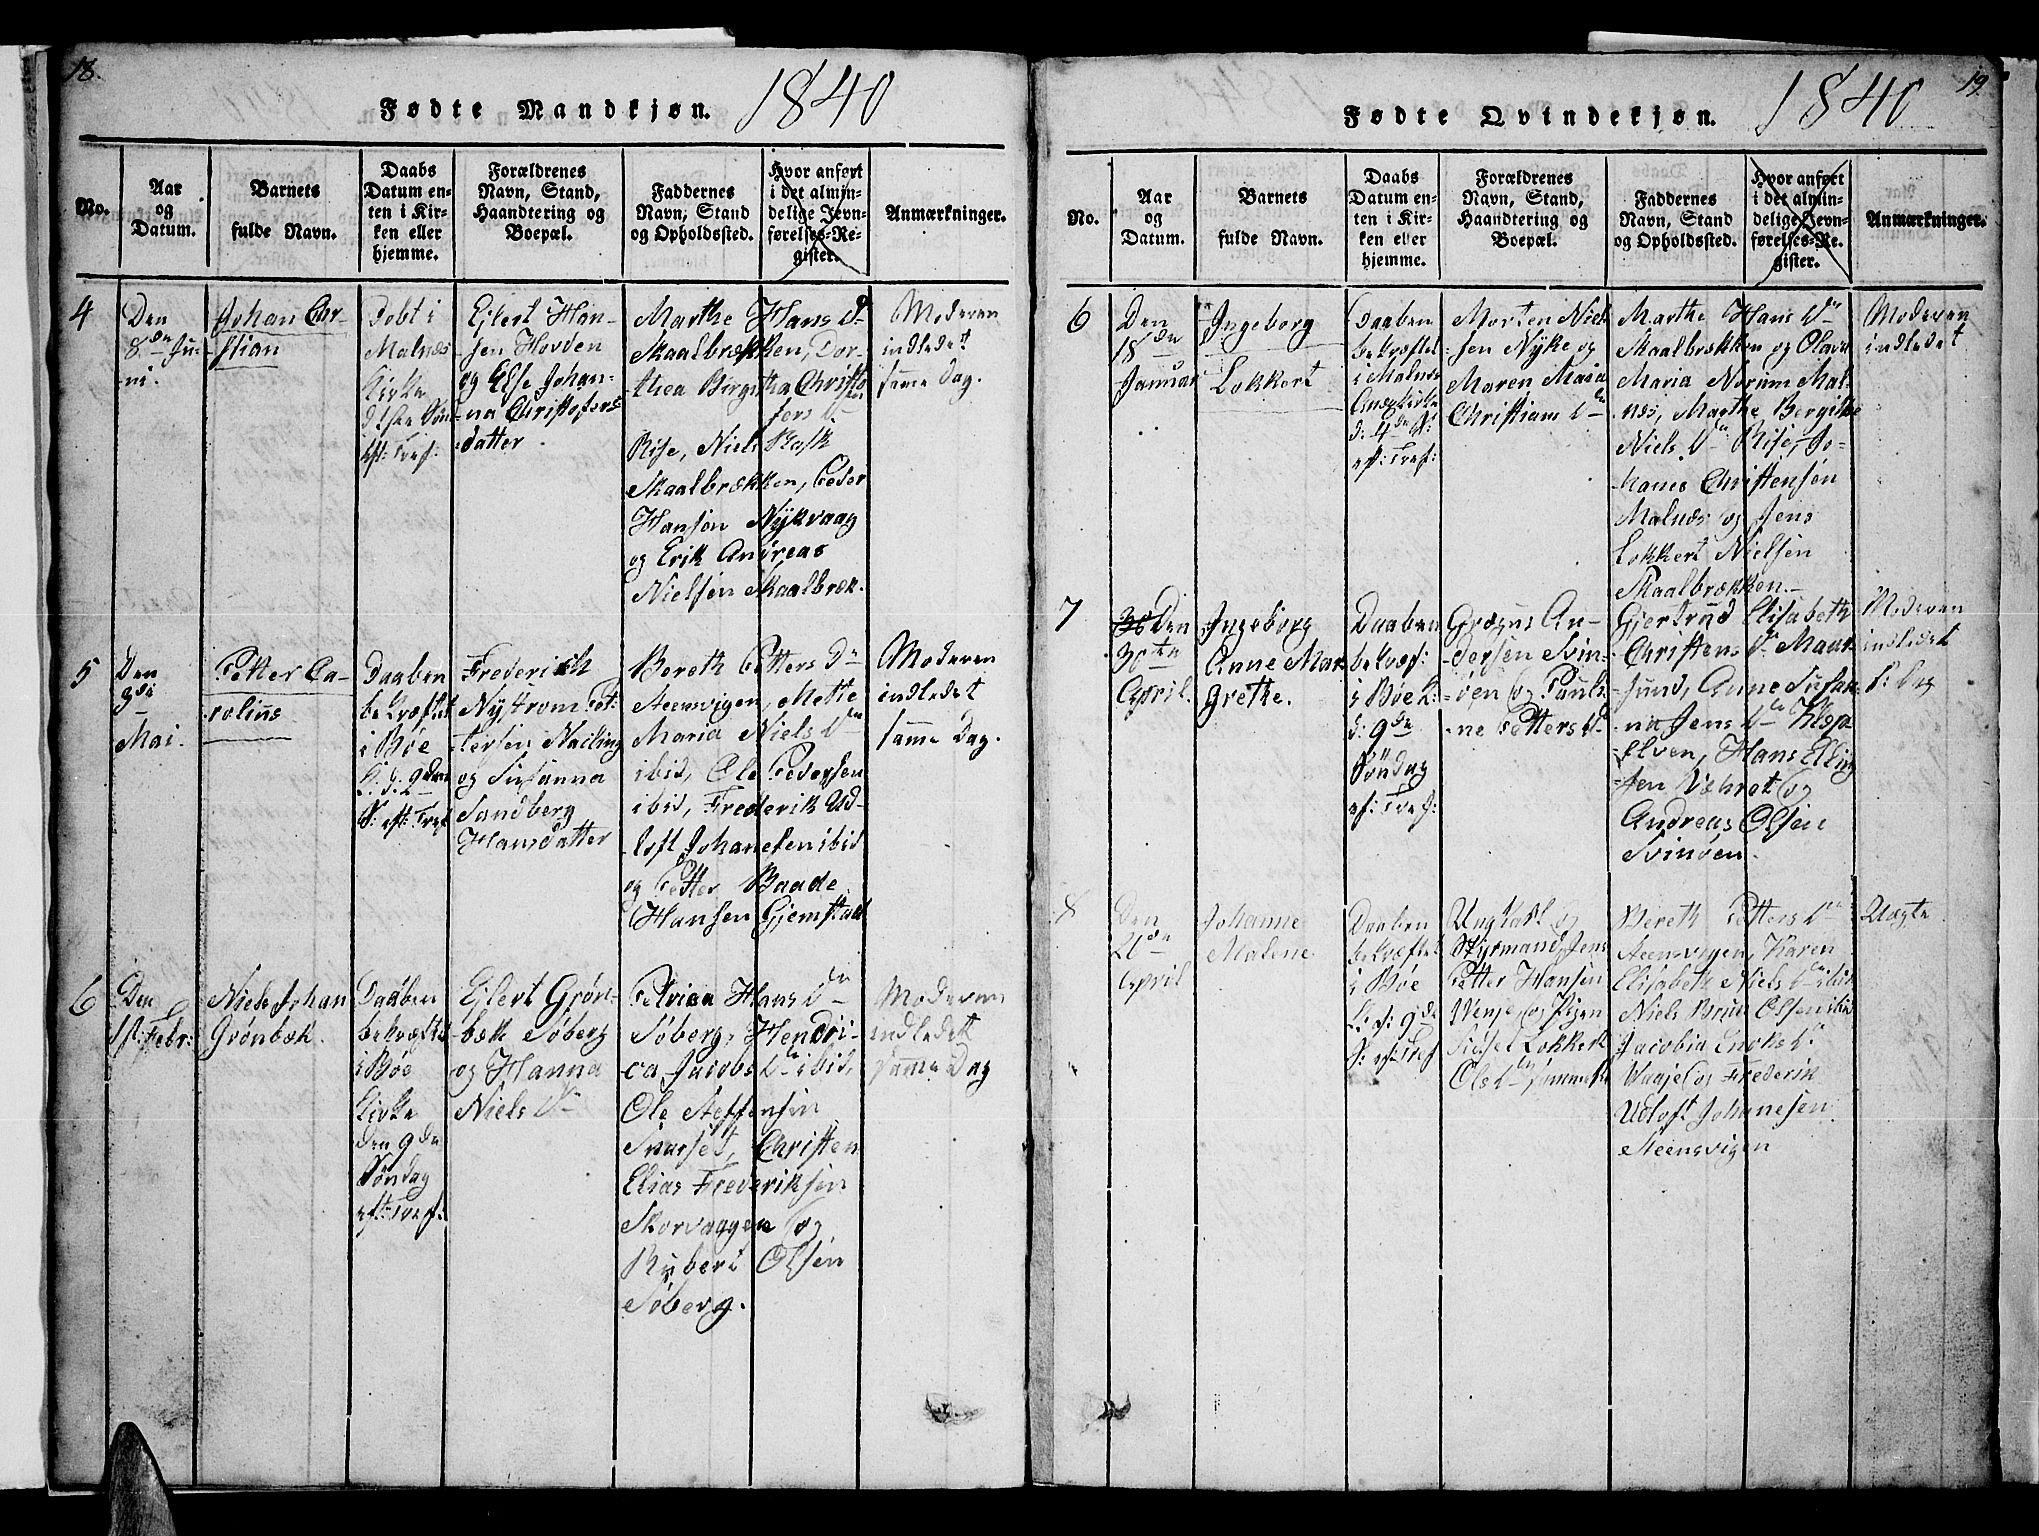 18.
Fødte Mandkjøn. 1840
No.
Aar
og
Datum.
Barnets
fulde Navn.
Daabs
Datum en-
ten i Kir-
ken eller
hjemme.
Forældrenes
Navn, Stand,
Haandtering og
Boepæl.
Faddernes
Navn, Stand
og Opholdssted.
Hvor anført
i det almin-
delige Jevn-
førelses-Re-
gister.
Anmærkninger.
4
Den
8de Ju-
ni.
Johan Chr-
stian
Døbt i
Malnes
Kirke
eft: Tref:
Ejlert Han-
sen Hovden
og Else Johan-
na Christofers
datter
Marthe Hans Dr
Skaalbrækken, Dor-
thea Birgitha Christo
fers Dr
Rise, Niels Rask
Skaalbrækken, Peder
Hansen Nykvaag
og Erik Andreas
Nielsen Skaalbræk.
Moderen
indledet
samme Dag.
5
Den
9de
Mai.
Petter Ca-
rolius
Daaben
bekræftet
i Bøe
K. d. 9den
S: eft: Tref
Frederich
Nystrom Pet-
tersen
og Susanna
Sandberg
Hansdatter
Bereth Petters Dr
Steensvigen, Mette
Maria Niels Dr
ibid, Ole Pedersen
ibid, Frederik Ud-
loft Johanesen ibid
og Petter Baade
Hansen Gjemstad
Moderen
indledet
samme Dag.
6
Den
1st: Febr:
Niels Johan
Grønbæk.
Daaben
bekræftet
i Bøe
Kirke
den 9de
Søndag
eft: Tref:
Ejlert Grøn-
bæk Søberg
og Hanna
Niels Dr
Petvica Hans Dr
Søberg, Hendri-
ca Jacobs Dr ibid,
Ole Steffensen
Snarset, Christen
Elias Frederiksen
Skorvaagen og
Rybert Olsen
Søberg.
Moderen
indledet
samme Dag
19.
Fødte Qvindekjøn. 1840
No.
Aar
og
Datum.
Barnets
fulde Navn.
Daabs
Datum en-
ten i Kir-
ken eller
hjemme.
Forældrenes
Navn, Stand,
Haandtering og
Boepæl.
Faddernes
Navn, Stand
og Opholdssted.
Hvor anført
i det almin-
delige Jevn-
førelses-Re-
gister.
Anmærkninger.
6
Den
18de
Januar
Ingeborg
Lokkert
Daaben
bekræftet
i Malnes
d. 4de S:
ef: Tref:
Morten Niel-
sen Nyke og
Maren Maria
Christians Dr
Marthe Hans Dr
Skaalbrækken og Olava
Maria Norum Mal-
nes, Marthe Bergithe
Niels Dr Rise, Jo-
hanes Christensen
Malnes og Jens
Lokkert Nielsen
Skaalbrækken.
Moderen
indledet
7
30 Den
30te
April.
Ingeborg
Anne Mar-
grethe.
Daaben
bekræf:
i Boe K:
d: 9de
Søndag
ef: Tref:
Græsus An-
dersen Svin-
øen og Pauli-
ne Petters Dr
Gjertrud Elisabeth
Christens Dr Maar-
sund, Anne Susan-
na Jens Dr Klep-
Elven, Hans Elling-
sen og
Andreas Olsen
Svinøen.
Moderen
indledet
s: Dag
8
Den
21de
April
Johanne
Malene
Daaben
bekræftet
i Bøe
K: d: 9de
S: ef: Tref
Ungkarl og
Styrmand Jens
Petter Hansen
Vinje og Pigen
Sidsel Lokkert
Ols Dr sammest:
Bereth Petters Dr
Steensvigen, Karen
Elisabeth Niels Dr ibid
Niels Bruun Olsen ibid
Jacobia Enoks D:
Vaaje og Frederik
Udloft Johanesen
Steensvigen
Uægte